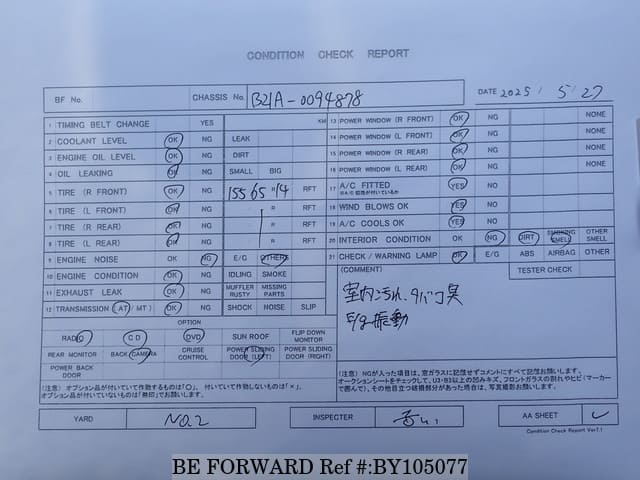 CONDITION CHECK REPORT
BF No.
CHASSIS No. B21A-0094878
DATE 2025 / 5 / 27
1 TIMING BELT CHANGE YES KM
2 COOLANT LEVEL OK NG LEAK
3 ENGINE OIL LEVEL OK NG DIRT
4 OIL LEAKING OK NG SMALL BIG
5 TIRE (R FRONT) OK NG 155 65 R 14 RFT
6 TIRE (L FRONT) OK NG R RFT
7 TIRE (R REAR) OK NG R RFT
8 TIRE (L REAR) OK NG R RFT
9 ENGINE NOISE OK NG E/G OTHERS
10 ENGINE CONDITION OK NG IDLING SMOKE
11 EXHAUST LEAK OK NG MUFFLER RUSTY MISSING PARTS
12 TRANSMISSION (AT / MT) OK NG SHOCK NOISE SLIP
13 POWER WINDOW (R FRONT) OK NG NONE
14 POWER WINDOW (L FRONT) OK NG NONE
15 POWER WINDOW (R REAR) OK NG NONE
16 POWER WINDOW (L REAR) OK NG NONE
17 A/C FITTED YES NO
18 WIND BLOWS OK YES NO
19 A/C COOLS OK YES NO
20 INTERIOR CONDITION OK NG DIRT SMOKING SMELL OTHER SMELL
21 CHECK / WARNING LAMP OK E/G ABS AIRBAG OTHER
(COMMENT)
TESTER CHECK
室内汚れ、タバコ臭
E/g 振動
OPTION
RADIO CD DVD SUN ROOF FLIP DOWN MONITOR
REAR MONITOR BACK CAMERA CRUISE CONTROL POWER SLIDING DOOR (LEFT) POWER SLIDING DOOR (RIGHT)
POWER BACK DOOR
(注意)オプション品が付いていて作動するものは「○」、付いていて作動しないものは「×」、
オプション品が付いていないものは「無印」でお願いします。
(注意)NGが入った項は、窓ガラスに記させずコメントにすべて記載お願いします。
オークションシートをチェックして、U3・B3以上の凹みキズ、フロントガラスの割れやヒビ(マーカー
で囲んで)、その他目立つ破損部分があった場合は、写真撮影お願いします。
YARD NO.2
INSPECTER
AA SHEET
Condition Check Report Ver7.1
BE FORWARD Ref #:BY105077